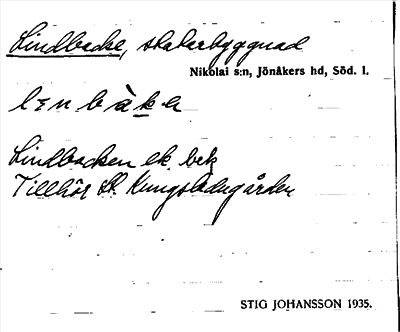 Lindbacke, statarbyggnad
Nikolai s:n, Jönåkers hd, Söd. l.
Lindbacken ek. bek
Tillhör St. Kungsladugården
STIG JOHANSSON 1935.